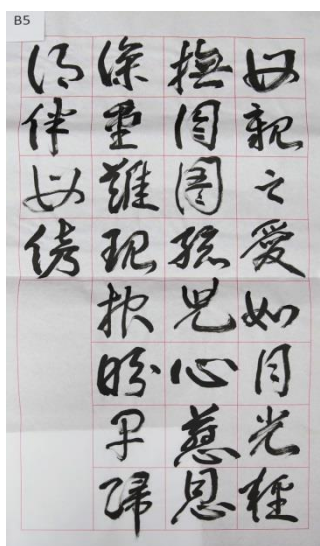 B5
母親之愛如月光輕
撫孩兒心慈恩
深重難現报盼早歸
得伴母